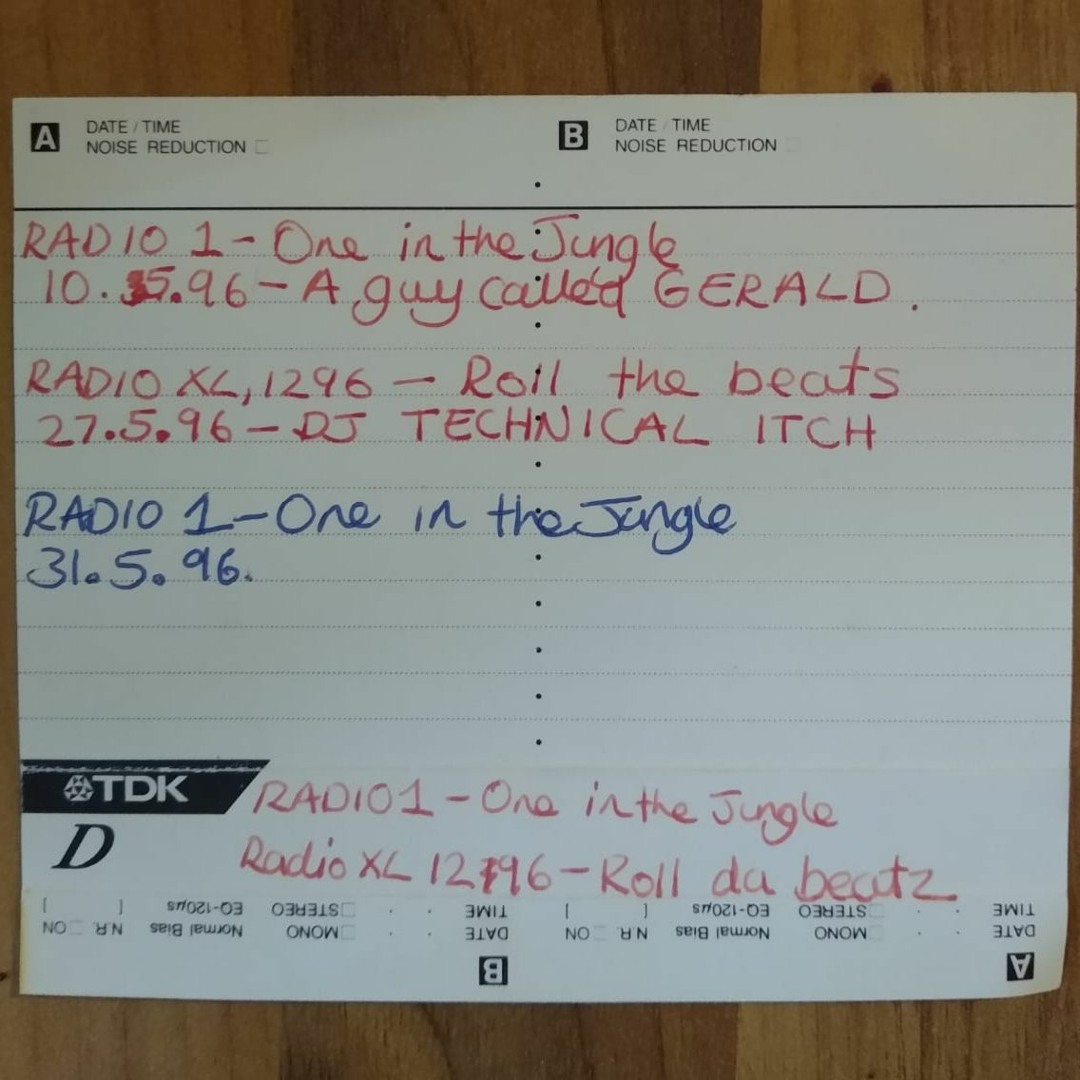 A DATE / TIME B DATE / TIME
NOISE REDUCTION NOISE REDUCTION
RADIO 1 - One in the Jungle
10.5.96 - A guy called GERALD.
RADIO XL, 1296 - Roll the beats
27.5.96 - DJ TECHNICAL ITCH
RADIO 1 - One in the Jungle
31.5.96.
TDK RADIO 1 - One in the Jungle
D Radio XL 1296 - Roll da beatz
A DATE MONO Normal Bias N.R. ON B DATE MONO Normal Bias N.R. ON
TIME STEREO EQ-120µs [ ] TIME STEREO EQ-120µs [ ]